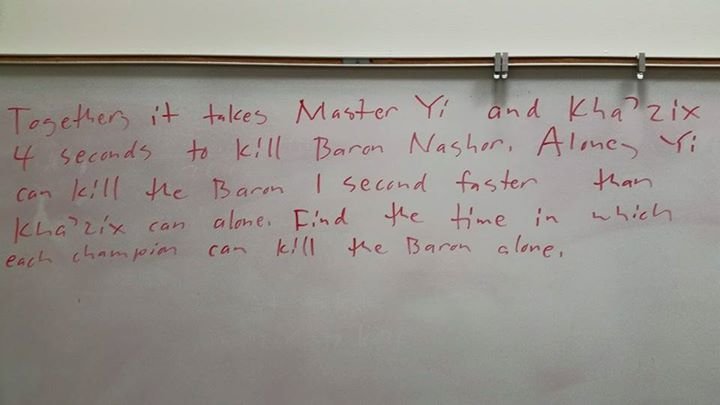 Together, it takes Master Yi and Kha'zix
4 seconds to kill Baron Nashor. Alone, Yi
can kill the Baron 1 second faster than
Kha'zix can alone. Find the time in which
each champion can kill the Baron alone.